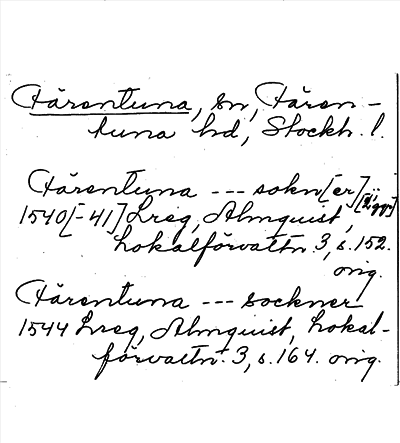 Färentuna, sn, Fären-
tuna hd, Stockh. l.
Färentuna --- sokn[er]
1540[-41] Lreg, Almquist,
Lokalförvaltn. 3, s. 152.
orig.
Färentuna --- sockner
1544 Lreg, Almquist, Lokal-
förvaltn. 3, s. 164. orig.